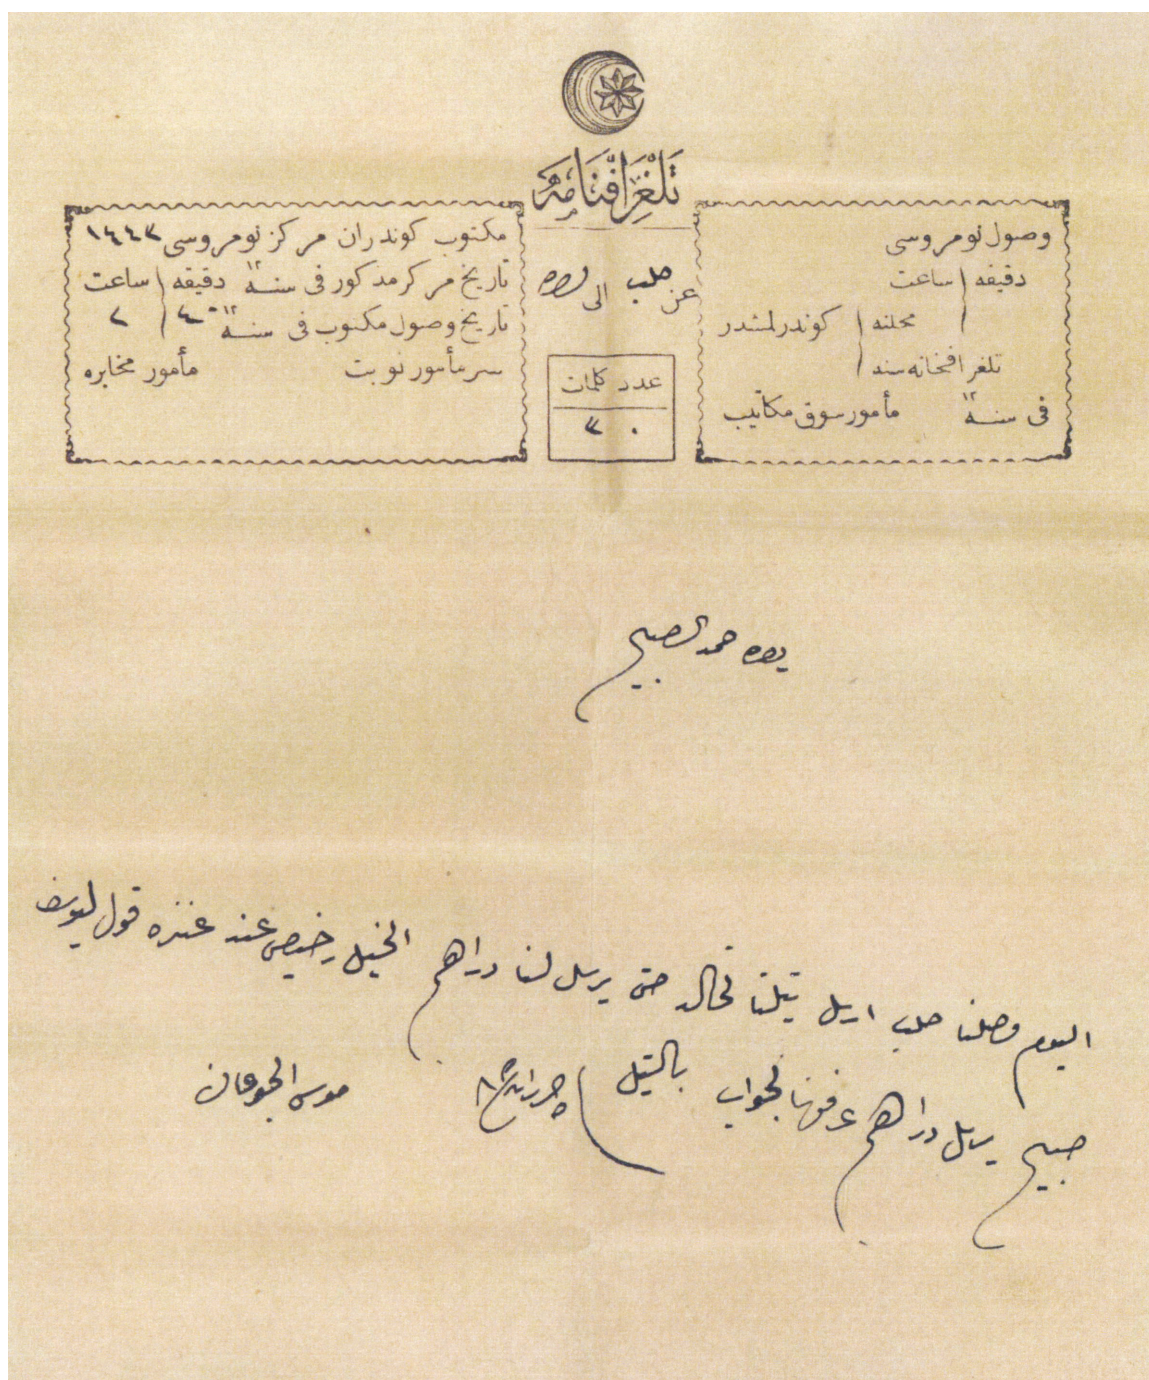 تلغرافنامه
وصول نومروسی
دقیقه ساعت
محلنه کوندرلمشدر
تلغرافخانه سنه
فی سنه ١٣ مأمور سوق مکاتیب
عن حلب الی بصره
عدد کلمات
٣٠
مکتوب کوندران مرکز نومروسی ١٤٤٣
تاریخ مرکز مذکور فی سنه ١٣ دقیقه ساعت
تاریخ وصول مکتوب فی سنه ١٣ ٤٠ ٢
سر مأمور نوبت مأمور مخابره
بصره حمد الصبيح
اليوم وصلنا حلب ارسل تيلنا لخالد حتى يرسل لنا دراهم الخيل رخيص عند عنزه قول ليوسف
صبيح يرسل دراهم عرفونا لجواب بالتيل
موسى الجوعان